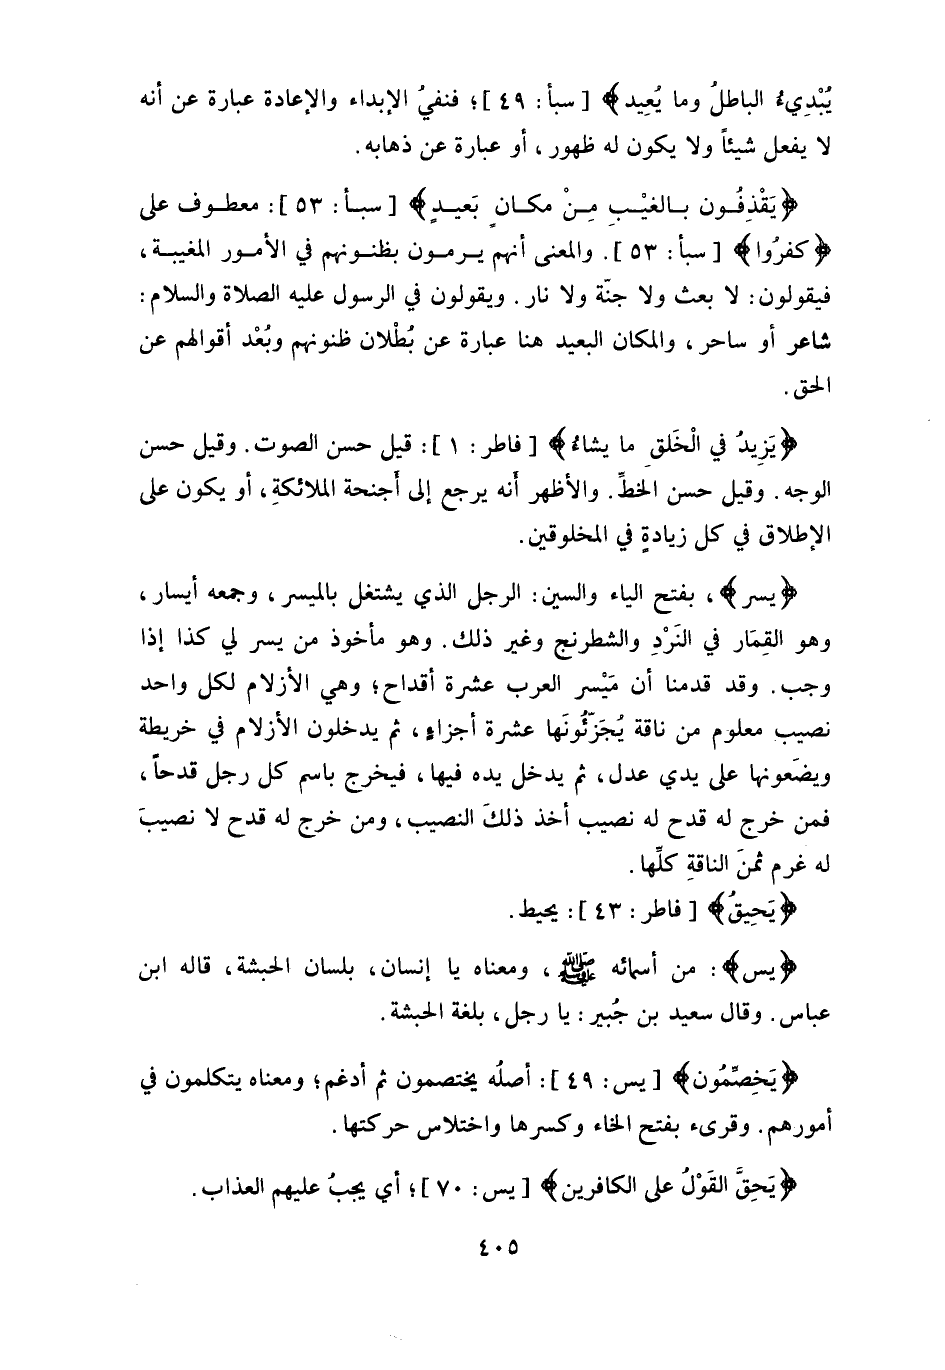 يُبْدِيءُ الباطلُ وما يُعِيد﴾ [ سبأ : ٤٩ ] ؛ فنفيُ الإبداء والإعادة عبارة عن أنه
لا يفعل شيئاً ولا يكون له ظهور ، أو عبارة عن ذهابه .
﴿يَقْذِفُون بالغَيْبِ مِنْ مكانٍ بَعيدٍ﴾ [ سبأ : ٥٣ ] : معطوف على
﴿كفرُوا﴾ [ سبأ : ٥٣ ] . والمعنى أنهم يرمون بظنونهم في الأمور المغيبة ،
فيقولون : لا بعث ولا جنّة ولا نار . ويقولون في الرسول عليه الصلاة والسلام :
شاعر أو ساحر ، والمكان البعيد هنا عبارة عن بُطْلان ظنونهم وبُعْد أقوالهم عن
الحق .
﴿يَزِيدُ في الْخَلقِ ما يشاءُ﴾ [ فاطر : ١ ] : قيل حسن الصوت . وقيل حسن
الوجه . وقيل حسن الخطِّ . والأظهر أَنه يرجع إلى أَجنحة الملائكةِ ، أو يكون على
الإطلاق في كل زيادةٍ في المخلوقين .
﴿يسر﴾ ، بفتح الياء والسين : الرجل الذي يشتغل بالميسر ، وجمعه أيسار ،
وهو القِمَار في النَرْدِ والشطرنج وغير ذلك . وهو مأخوذ من يسر لي كذا إذا
وجب . وقد قدمنا أن مَيْسر العرب عشرة أقداح ؛ وهي الأزلام لكل واحد
نصيب معلوم من ناقة يُجَزِّئُونَها عشرة أجزاءٍ ، ثم يدخلون الأزلام في خريطة
ويضَعونها على يدي عدل ، ثم يدخل يده فيها ، فيخرج باسم كل رجل قدحاً ،
فمن خرج له قدح له نصيب أخذ ذلكَ النصيب ، ومن خرج له قدح لا نصيبَ
له غرم ثمنَ الناقةِ كلِّها .
﴿يَحِيقُ﴾ [ فاطر : ٤٣ ] : يحيط .
﴿يس﴾ : من أسمائه ﷺ ، ومعناه يا إنسان ، بلسان الحبشة ، قاله ابن
عباس . وقال سعيد بن جُبير : يا رجل ، بلغة الحبشة .
﴿يَخصِّمُون﴾ [ يس : ٤٩ ] : أصلُه يختصمون ثم أدغم ؛ ومعناه يتكلمون في
أمورهم . وقرىء بفتح الخاء وكسرها واختلاس حركتها .
﴿يَحِقَّ القَوْلُ على الكافرين﴾ [ يس : ٧٠ ] ؛ أي يجبُ عليهم العذاب .
٤٠٥